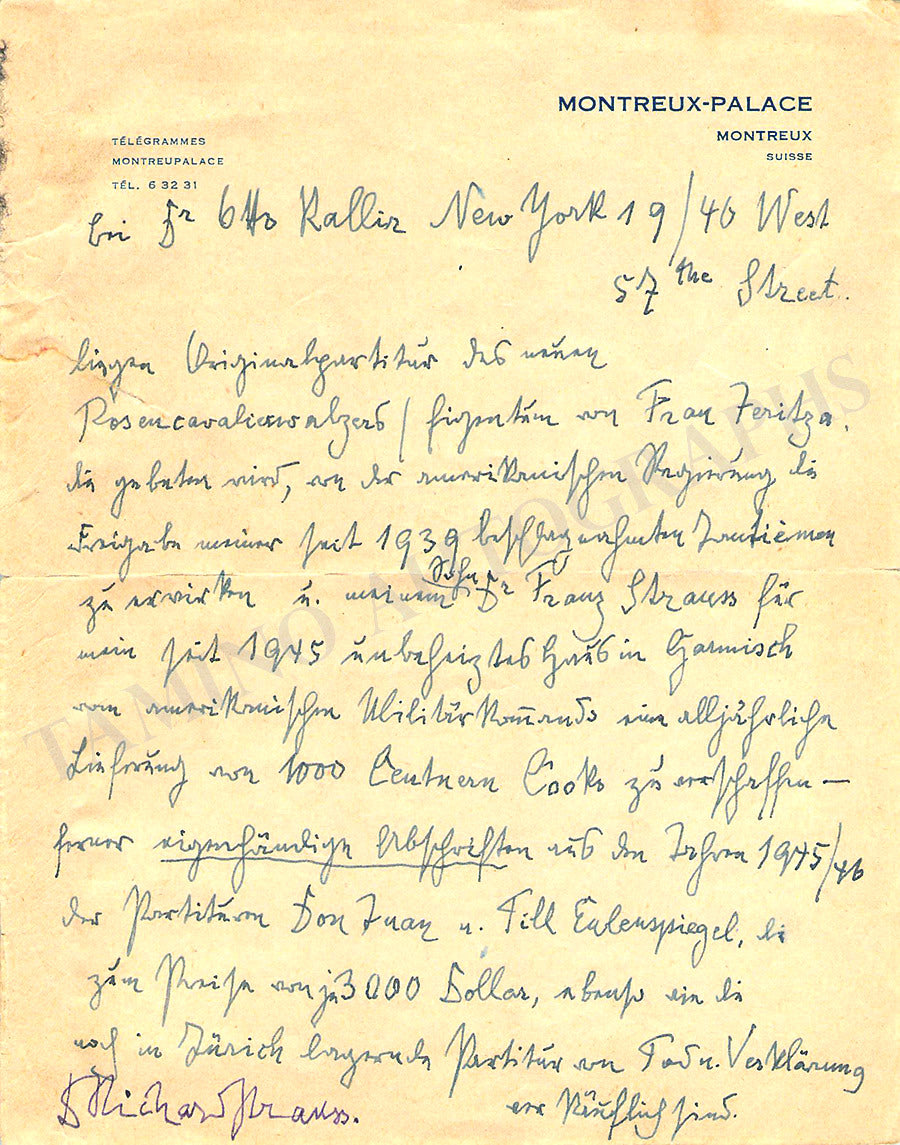 MONTREUX-PALACE
MONTREUX
SUISSE
TÉLÉGRAMMES
MONTREUPALACE
TÉL. 6 32 31
bei Dr Otto Kallir New York 19/46 West
57the Street.
liegen Originalpartitur des neuen
Rosencavalierwalzers / Eigentum von Frau Jeritza,
die gebeten wird, von der amerikanischen Regierung die
Freigabe meiner seit 1939 beschlagnahmten Tantièmen
zu erwirken u. meinem Sohn Dr Franz Strauss für
mein seit 1945 unbeheiztes Haus in Garmisch
vom amerikanischen Militärkommando eine alljährliche
Lieferung von 1000 Centnern Cooks zu verschaffen —
ferner eigenhändige Abschriften aus den Jahren 1945/46
der Partituren Don Juan u. Till Eulenspiegel, die
zum Preise von je 3000 Dollar, ebenso wie die
noch in Zürich lagernde Partitur von Tod u. Verklärung
verkäuflich sind.
Dr Richard Strauss.
TAMINO AUTOGRAPHS